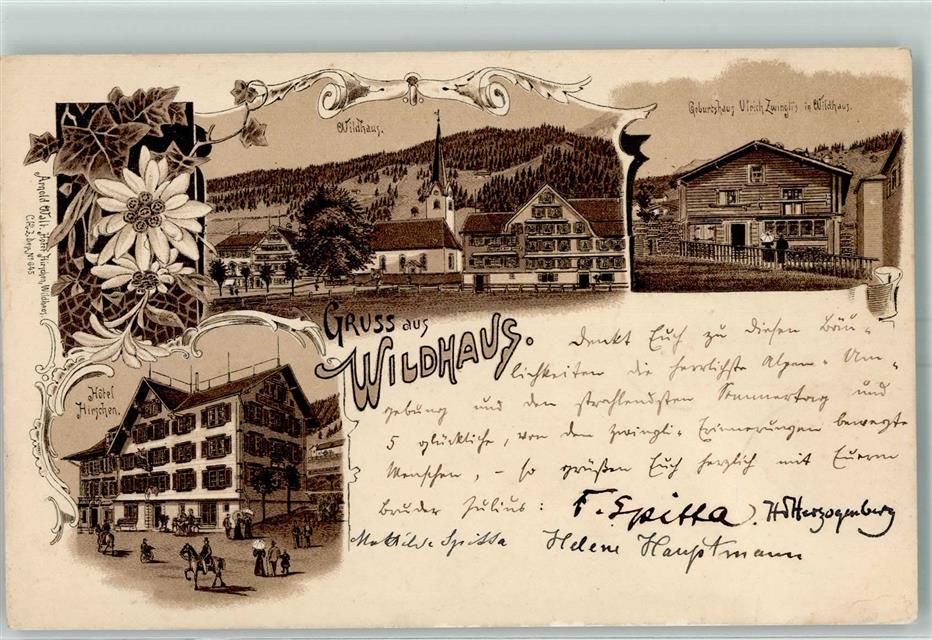 Wildhaus.
Geburtshaus Ulrich Zwingli's in Wildhaus.
Arnold Walt, Hotel Hirschen, Wildhaus,
No 645
GRUSS aus
WILDHAUS.
Hôtel
Hirschen.
Denkt Euch zu diesen Bäu-
lichkeiten die herrlichste Alpen-Um-
gebung und den strahlendsten Sommertag und
5 glückliche, von den Zwingli-Erinnerungen bewegte
Menschen, - so grüßen Euch herzlich mit Euerm
Bruder Julius:
F. Spitta. HvHerzogenberg
Mathilde Spitta Helene Hauptmann